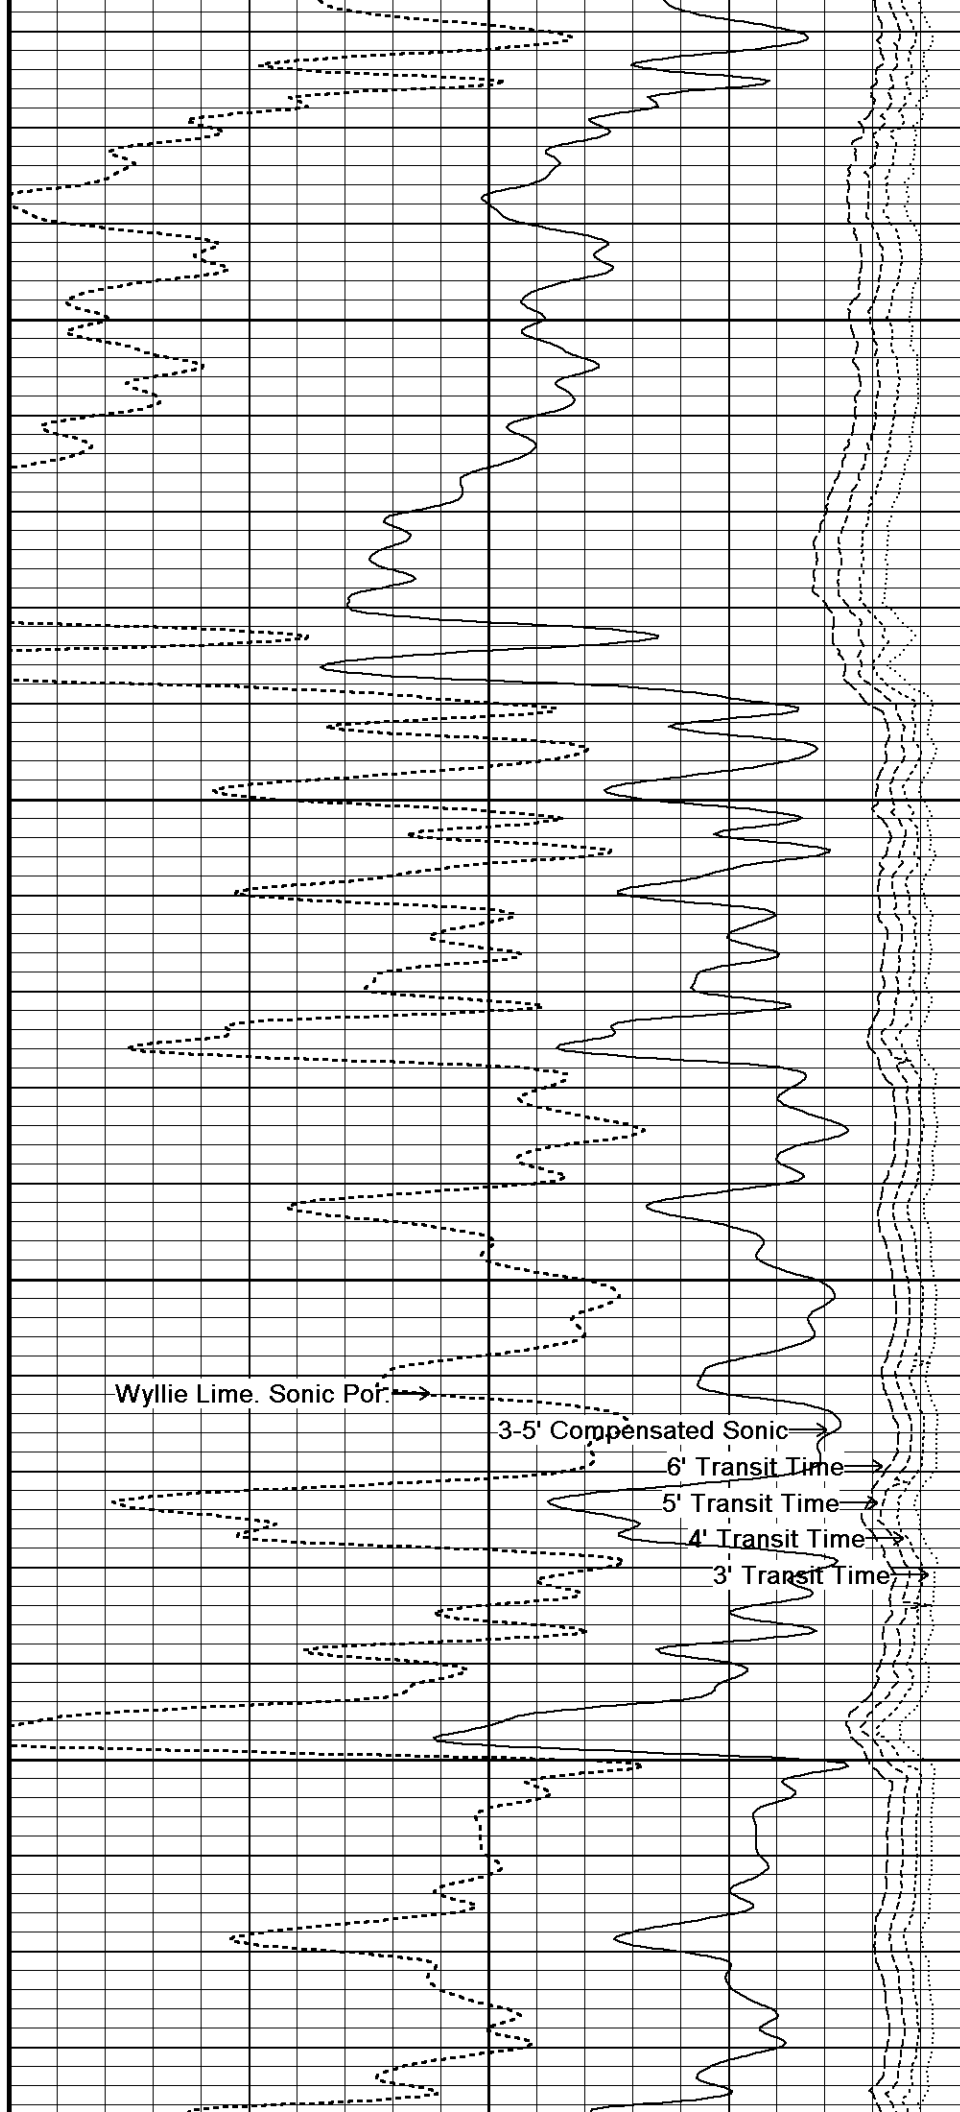 Wyllie Lime. Sonic Por.
3-5' Compensated Sonic
6' Transit Time
5' Transit Time
4' Transit Time
3' Transit Time